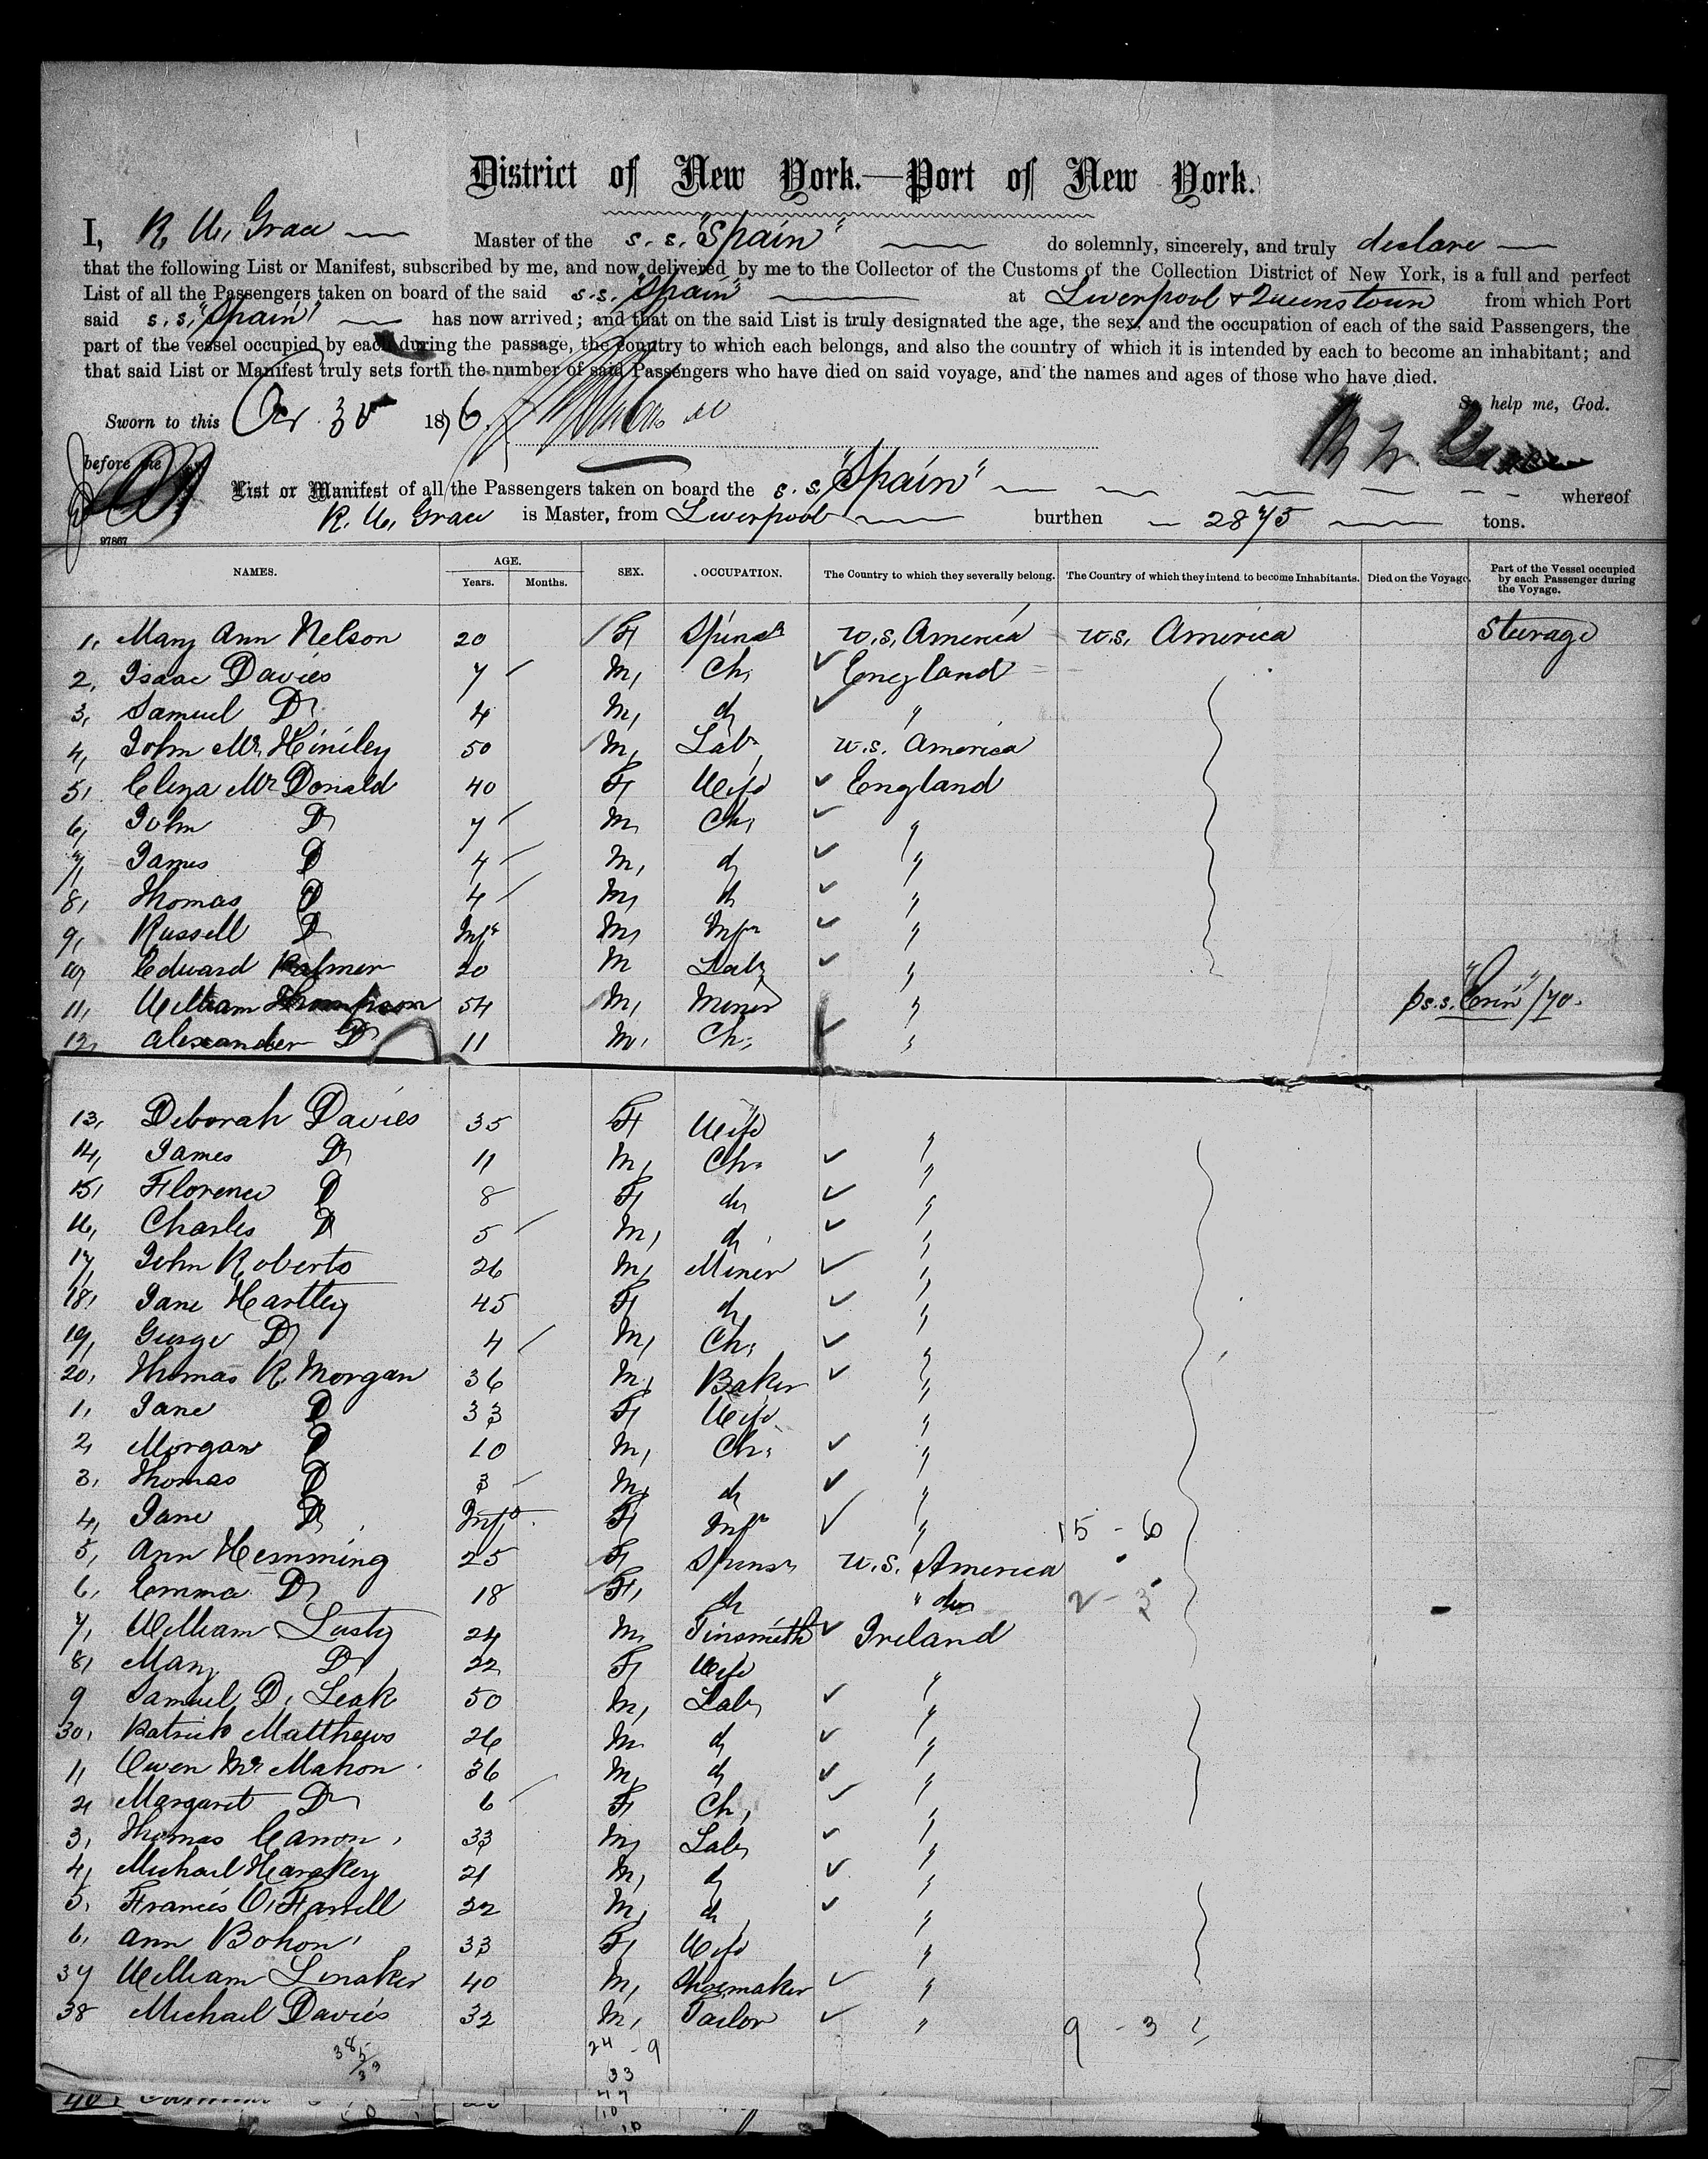 District of New York.—Port of New York.
I, R. W. Grace Master of the s.s. "Spain" do solemnly, sincerely, and truly declare
that the following List or Manifest, subscribed by me, and now delivered by me to the Collector of the Customs of the Collection District of New York, is a full and perfect
List of all the Passengers taken on board of the said s.s. "Spain" at Liverpool & Queenstown from which Port
said s.s. "Spain" has now arrived; and that on the said List is truly designated the age, the sex, and the occupation of each of the said Passengers, the
part of the vessel occupied by each during the passage, the country to which each belongs, and also the country of which it is intended by each to become an inhabitant; and
that said List or Manifest truly sets forth the number of said Passengers who have died on said voyage, and the names and ages of those who have died.
So help me, God.
Sworn to this Oct. 30 1876.
before me
List or Manifest of all the Passengers taken on board the s.s. "Spain" whereof
R. W. Grace is Master, from Liverpool burthen 2875 tons.
97867
NAMES. AGE. Years. Months. SEX. OCCUPATION. The Country to which they severally belong. The Country of which they intend to become Inhabitants. Died on the Voyage. Part of the Vessel occupied by each Passenger during the Voyage.
1, Mary Ann Nelson 20 F Spinsr U.S. America U.S. America Steerage
2, Isaac Davies 7 M, Ch, England
3, Samuel Do 4 M, do "
4, John McHiniley 50 M, Labr U.S. America
5, Eliza McDonald 40 F Wife England
6, John Do 7 M, Ch, "
7, James Do 4 M, do "
8, Thomas Do 4 M, do "
9, Russell Do Inft M, Inft "
10, Edward Palmer 20 M Labr "
11, William Thompson 54 M, Miner " p s.s. "Erin" /70.
12, Alexander Do 11 M, Ch, "
13, Deborah Davies 35 F Wife "
14, James Do 11 M, Ch, "
15, Florence Do 8 F do "
16, Charles Do 5 M, do "
17, John Roberts 26 M, Miner "
18, Jane Hartley 45 F do "
19, George Do 4 M, Ch, "
20, Thomas R. Morgan 36 M, Baker "
1, Jane Do 33 F Wife "
2, Morgan Do 10 M, Ch, "
3, Thomas Do 3 M, do "
4, Jane Do Inft F Inft " 15 - 6
5, Ann Hemming 25 F Spinsr U.S. America
6, Emma Do 18 F, do " do 2 - 3
7, William Lusty 24 M, Tinsmith Ireland
8, Mary Do 22 F Wife "
9 Samuel D. Leak 50 M, Labr "
30, Patrick Matthews 26 M do "
1, Owen McMahon 36 M, do "
2, Margaret Do 6 F Ch, "
3, Thomas Canon 33 M, Labr "
4, Michael Harskey 21 M, do "
5, Francis O'Farrell 22 M, do "
6, Ann Bohon 33 F Wife "
37 William Linaker 40 M, Shoemaker "
38 Michael Davies 32 M, Tailor " 9 - 3
38 5/33 24 - 9
33
47
10
40,